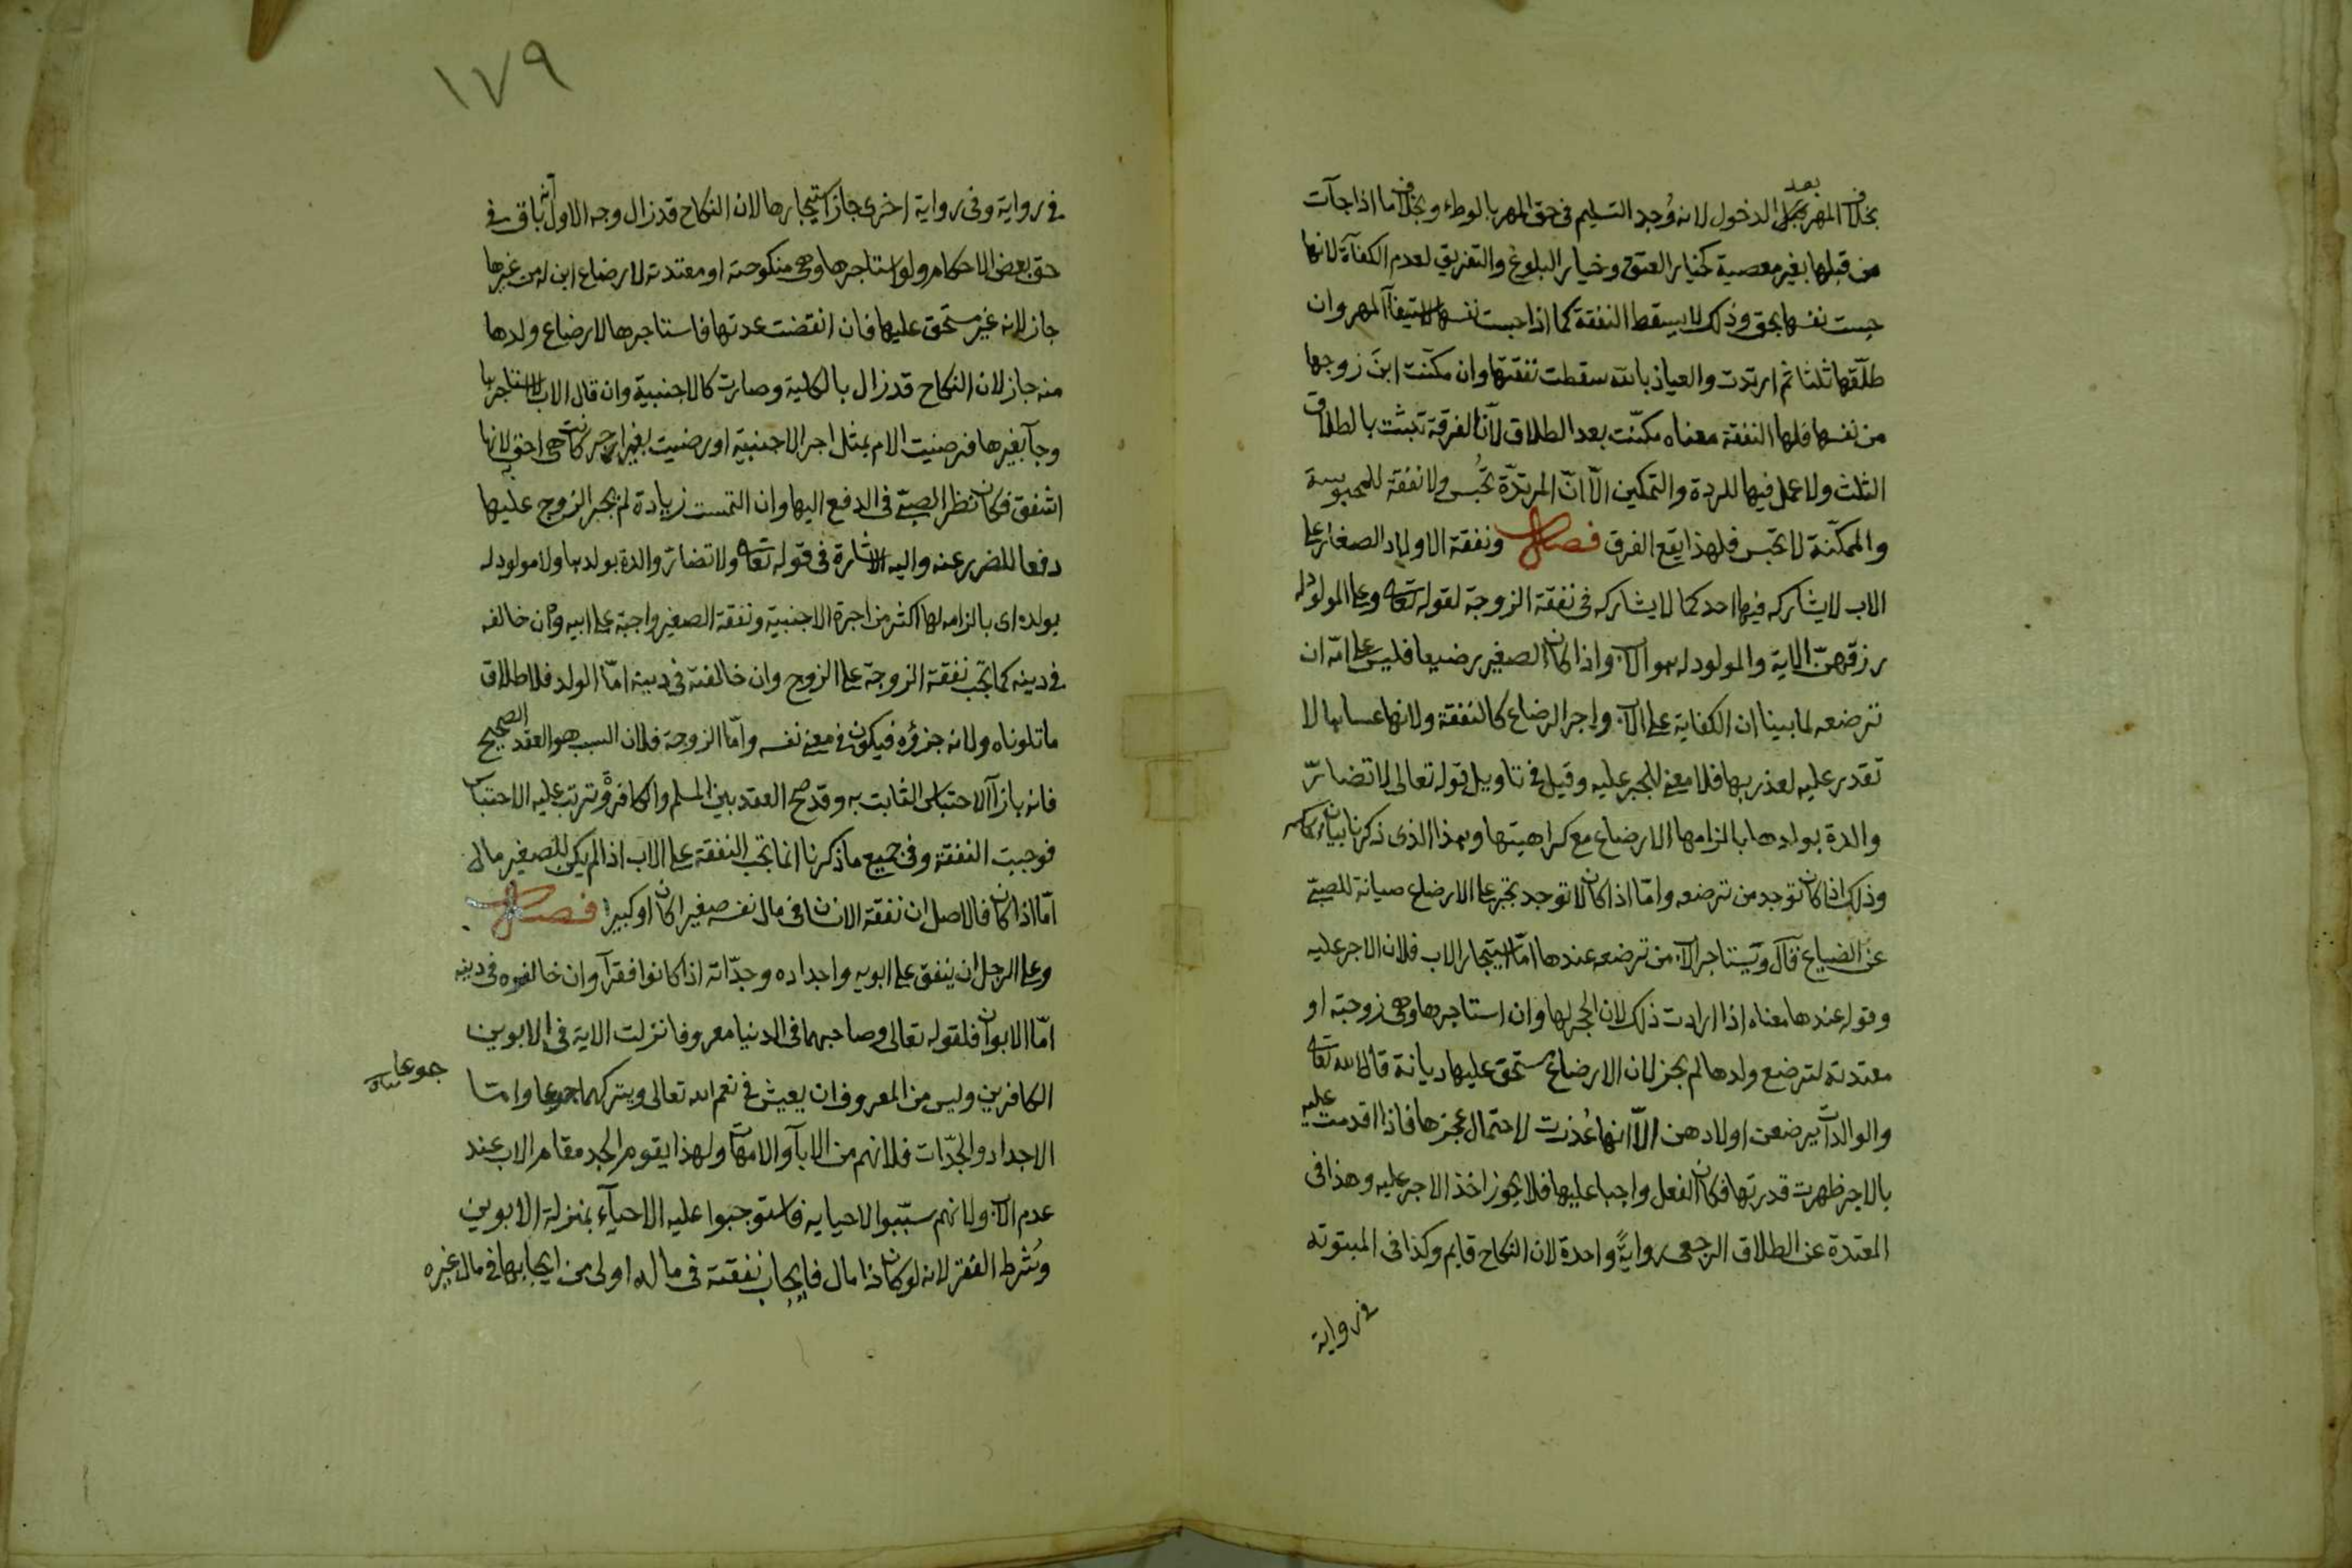 بخلاف المهر بعد الدخول لانه وُجد التسليم فى حق المهر بالوطء وبخلاف ما اذا جآت
من قبلها بغير معصية كخيار العتق وخيار البلوغ والتفريق لعدم الكفآة لانها
حبست نفسها بحق وذلك لا يسقط النفقة كما اذا حبست نفسها لاستيفآ المهر وان
طلّقها ثلثا ثم ارتدت والعياذ بالله سقطت نفقتها وان مكّنت ابنَ زوجها
من نفسها فلها النفقة معناه مكّنت بعد الطلاق لآنّ الفرقة تثبت بالطلاق
الثلث ولا عمل فيها للردة والتمكين الاّ انّ المرتدّة تُحبس ولا نفقة للمحبوسة
والممكّنة لا تحبس فلهذا يقع الفرق فصل ونفقة الاولاد الصغار على
الاب لا يشاركه فيها احد كما لا يشاركه فى نفقة الزوجة لقوله تعالى وعلى المولود له
رزقهنّ الاية والمولود له هو الاب واذا كان الصغير رضيعا فليس على امّه ان
ترضعه لما بينا ان الكفاية على الاب واجر الرضاع كالنفقة ولانها عساها لا
تقدر عليه لعذر بها فلا معنى للجبر عليه وقيل فى تاويل قوله تعالى لا تضارّ
والدة بولدها بالزامها الارضاع مع كراهيتها وهذا الذى ذكرنا بيان الحكم
وذلك اذا كان توجد من ترضعه وامّا اذا كان لا توجد تجبر على الارضاع صيانة للصبىّ
عن الضياع قآل ويستاجر الاب من ترضعه عندها امّا استيجار الاب فلان الاجر عليه
وقوله عندها معناه اذا ارادت ذلك لان الحجر لها وان استاجرها وهى زوجته او
معتدته لترضع ولدها لم يجز لان الارضاع مستحق عليها ديانة قال الله تعالى
والوالدات يرضعن اولادهن الاّ انها عُذرت لاحتمال عجزها فاذا اقدمت عليه
بالاجر ظهرت قدرتها فكان الفعل واجبا عليها فلا يجوز اخذ الاجر عليه وهذا فى
المعتدة عن الطلاق الرجعى روايةً واحدة لان النكاح قايم وكذا فى المبتوتة
فى رواية
١٧٩
فى رواية وفى رواية اخرى جاز استيجارها لان النكاح قد زال وجه الاول انه باق فى
حق بعض الاحكام ولو استاجرها وهى منكوحته او معتدته لارضاع ابن له من غيرها
جاز لانه غير مستحق عليها فان انقضت عدتها فاستاجرها لارضاع ولدها
منه جاز لان النكاح قد زال بالكلية وصارت كالاجنبية وان قال الاب لا استاجرها
وجآ بغيرها فرضيت الام بمثل اجر الاجنبية او رضيت بغير اجر كانت هى احق لانها
اشفق فكان نظر الصبىّ فى الدفع اليها وان التمست زيادة لم يجبر الزوج عليها
دفعا للضرر عنه واليه الاشارة فى قوله تعالى ولا تضارّ والدة بولدها ولا مولود له
بولده اى بالزامه لها اكثر من اجرة الاجنبية ونفقة الصغير واجبة على ابيه وان خالفه
فى دينه كما تجب نفقة الزوجة على الزوج وان خالفته فى دينه امّا الولد فلاطلاق
ما تلوناه ولانه جزؤه فيكون فى معنى نفسه وامّا الزوجة فلان السبب هو العقد الصحيح
فانه بازآ الاحتباس الثابت به وقد صح العقد بين المسلم والكافرة وترتب عليه الاحتباس
فوجبت النفقة وفى جميع ما ذكرنا انما تجب النفقة على الاب اذا لم يكن للصغير مال
امّا اذا كان فالاصل ان نفقة الانسان فى مال نفسه صغيرا كان او كبيرا فصل
وعلى الرجل ان ينفق على ابويه واجداده وجدّاته اذا كانوا فقرآ وان خالفوه فى دينه
امّا الابوان فلقوله تعالى وصاحبهما فى الدنيا معروفا نزلت الاية فى الابوين
الكافرين وليس من المعروف ان يعيش فى نعم الله تعالى ويتركهما جوعا وامّا
جوعا
الاجداد والجدّات فلانهم من الابآ والامهات ولهذا يقوم الجد مقام الاب عند
عدم الاب ولانهم سبّبوا لاحيايه فاستوجبوا عليه الاحيآء بمنزلة الابوين
وشُرط الفقر لانه لو كان ذا مال فايجاب نفقته فى ماله اولى من ايجابها فى مال غيره